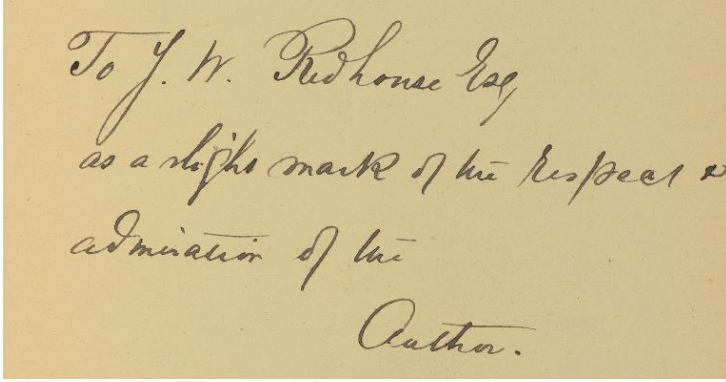 To J. W. Redhouse Esq
as a slight mark of the respect &
admiration of the
Author.